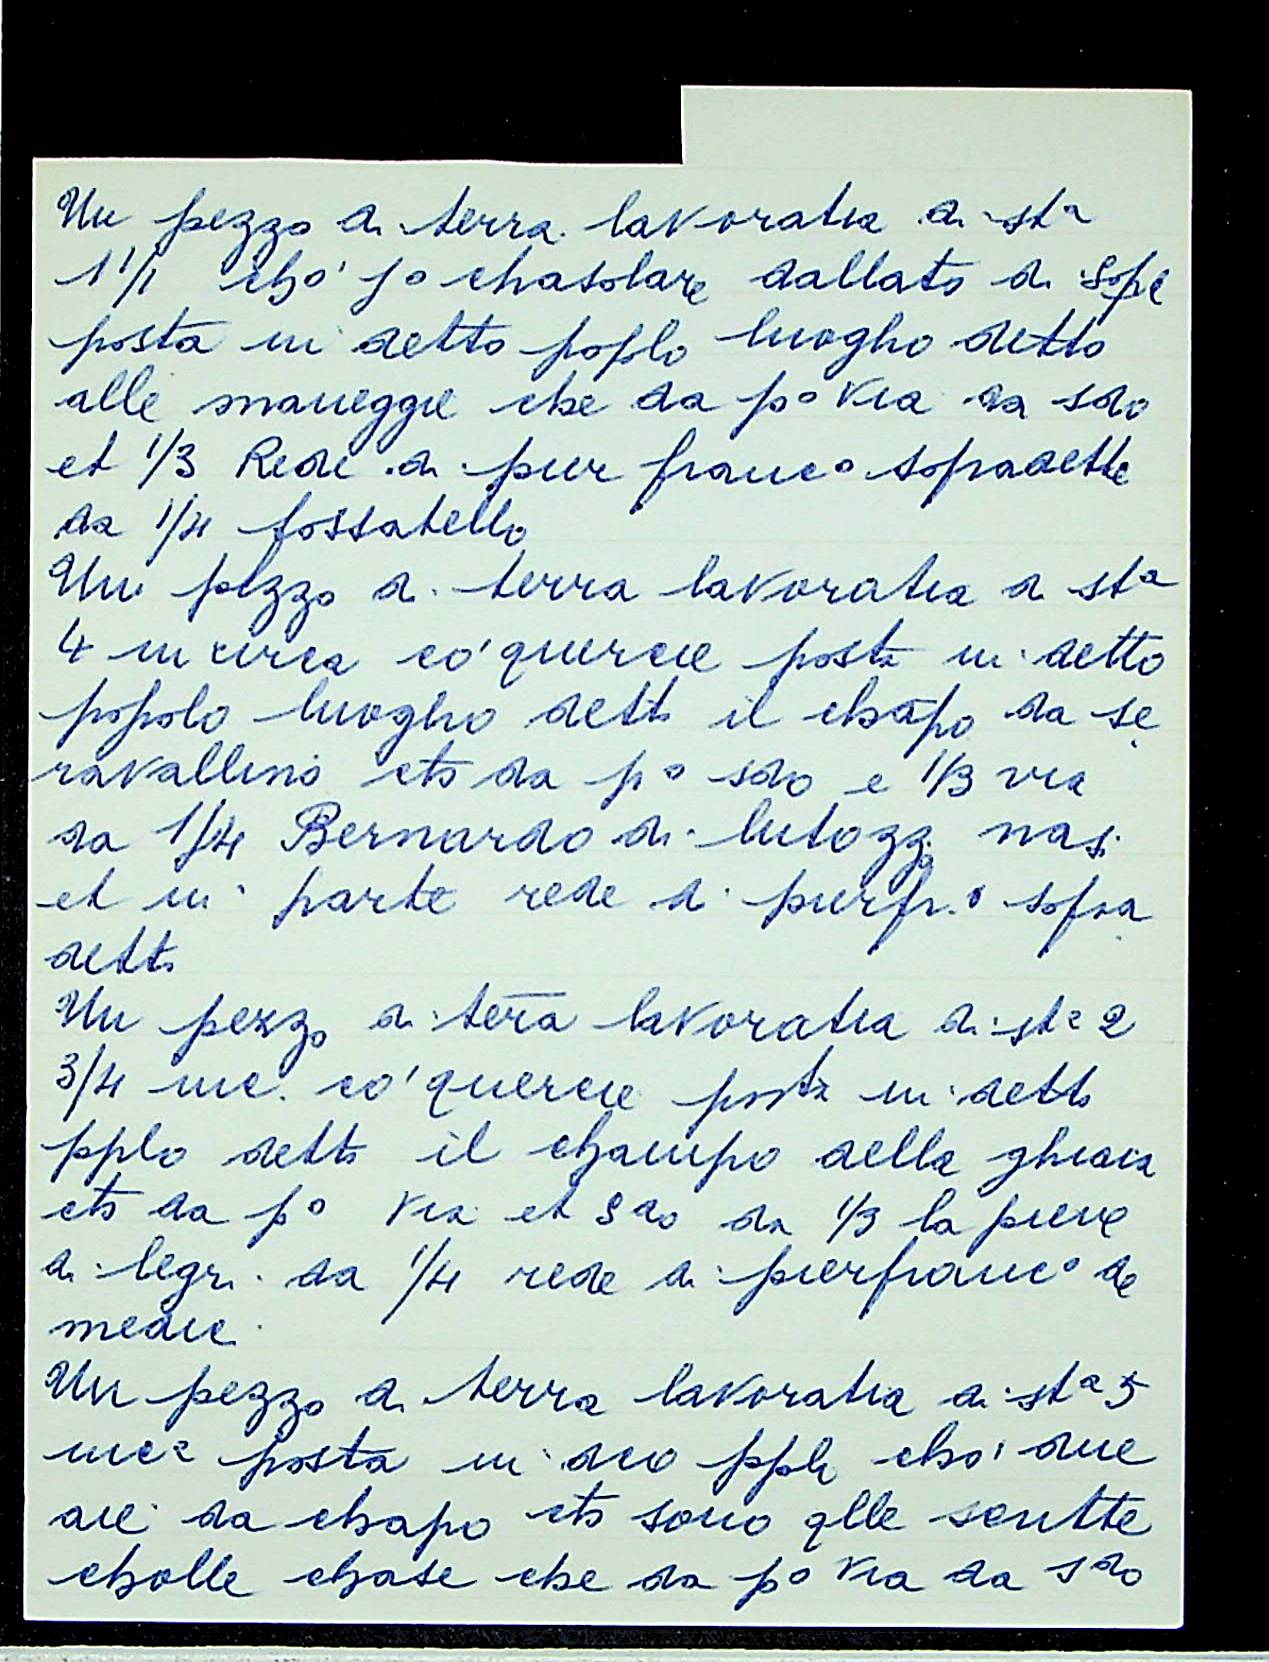 Un pezzo di terra lavoratia di sta
1 1/1 cho' jo chasolare dallato di sope
posta in detto poplo luogho detto
alle maneggie che da po via da sdo
et 1/3 Rede di pier franco sopradette
da 1/4 fossatello
Un pezzo di terra lavoratia di sta
4 in circa co' quercie posta in detto
popolo luogho detto il chāpo da se
ravallino cto da po sdo e 1/3 via
da 1/4 Bernardo di lutozzo nasi
et in parte rede di pierfr.o sopra
detto
Un pezzo di terra lavoratia di sta 2
3/4 inc. co' quercie posta in detto
pplo detto il champo della ghiaia
cto da po via et sdo da 1/3 la pieve
di legri. da 1/4 rede di pierfranco de
medici.
Un pezzo di terra lavoratia di sta 5
inca posta in dco pplo cho' due
aie da chapo cto sono qlle scritte
cholle chase che da po via da sdo